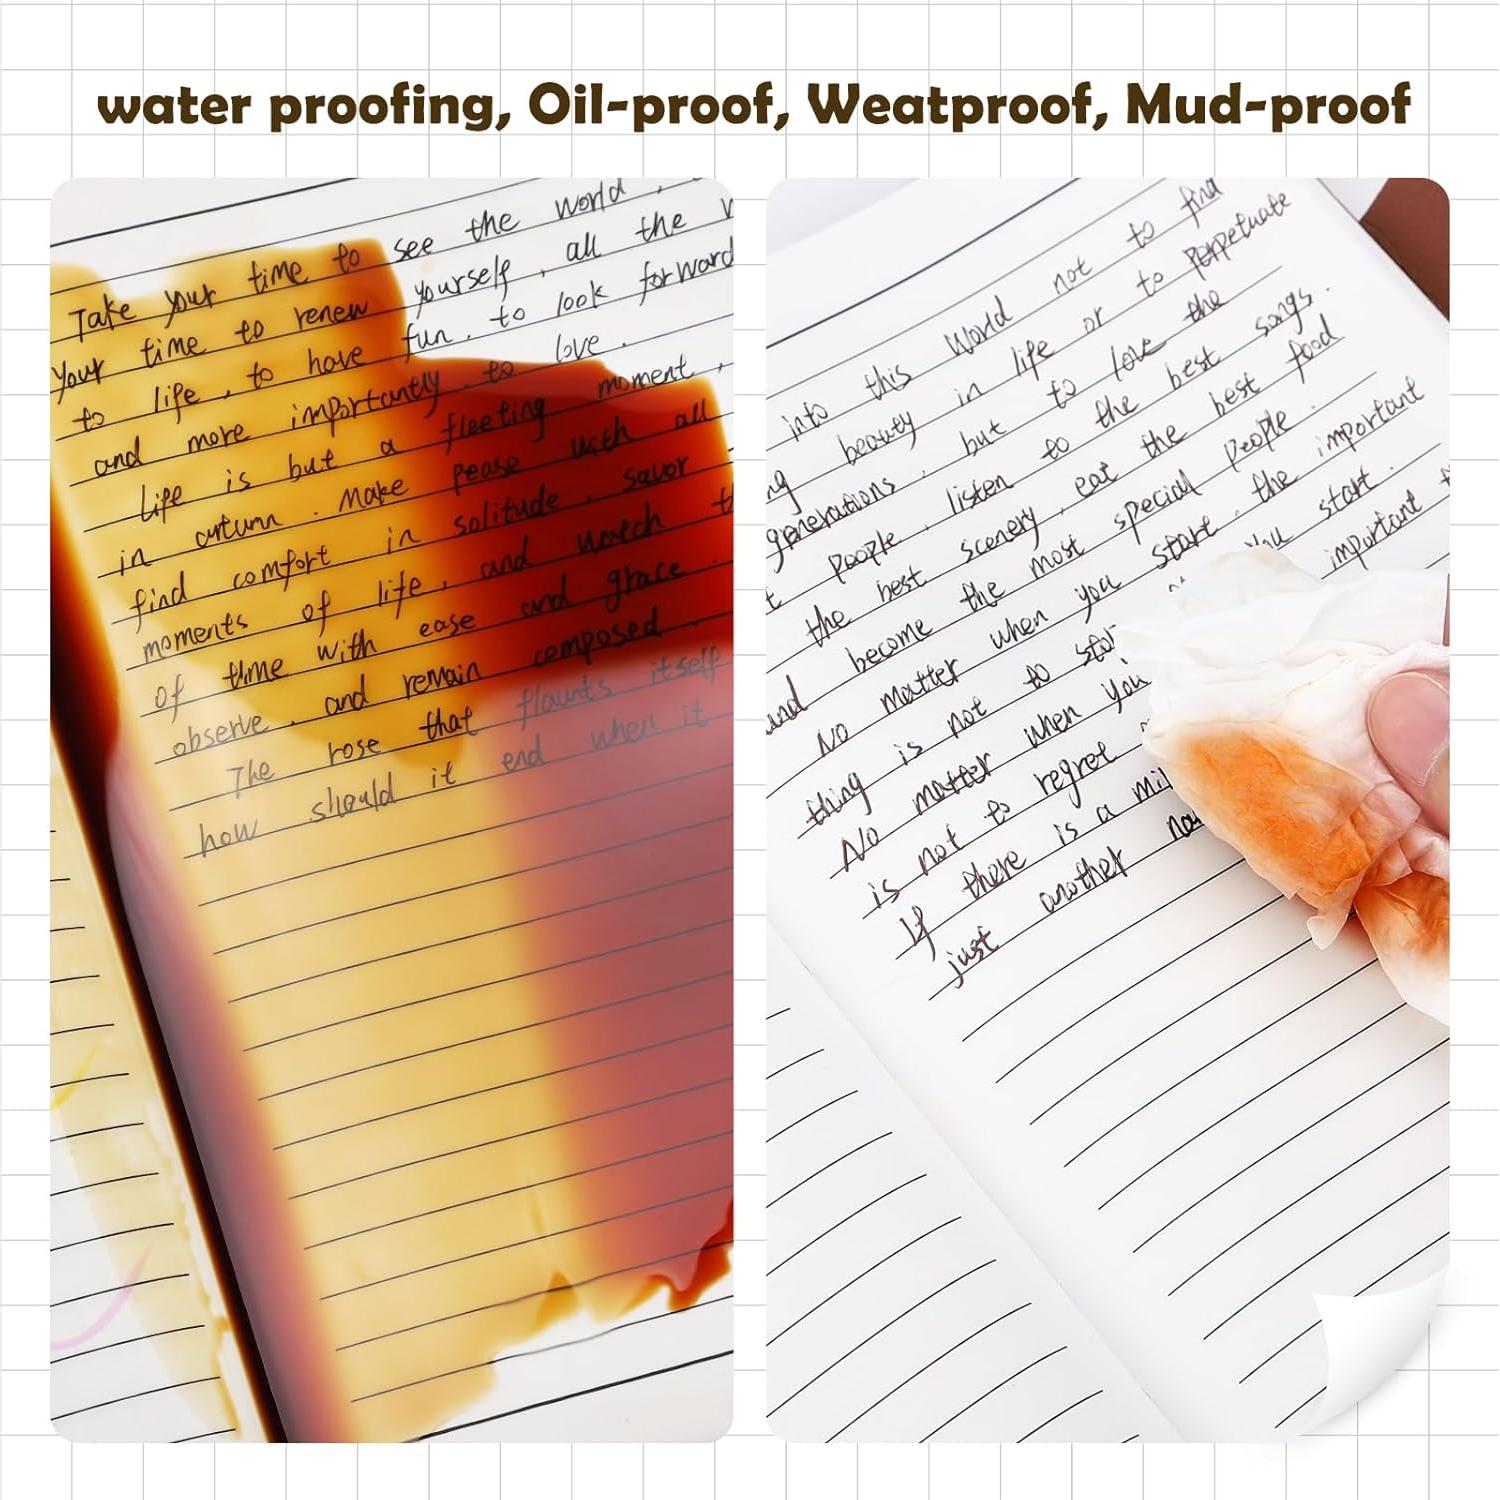 water proofing, Oil-proof, Weatproof, Mud-proof
Take your time to see the world ,
your time to renew yourself , all the
to life , to have fun . to look forward
and more importantly . to love .
Life is but a fleeting moment ,
in autumn . Make pease with all
find comfort in solitude , savor
moments of life , and watch
of time with ease and grace .
observe , and remain composed .
The rose that flaunts itself
how should it end when it
into this world not to find
beauty in life or to perpetuate
generations , but to love the
people , listen to the best songs .
the best scenery , eat the best food
and become the most special people .
No matter when you start , the important
thing is not to
No matter when you start .
is not to regret important
If there is a
just another